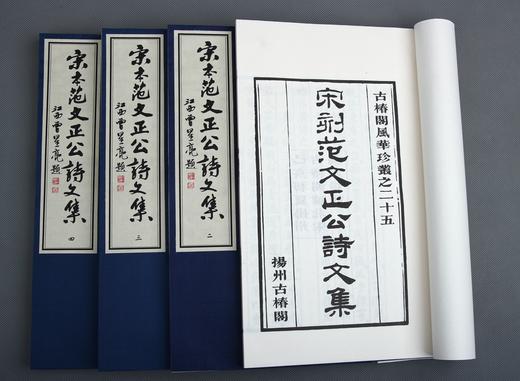 古椿閣風華珍叢之二十五
宋刻范文正公詩文集
揚州古椿閣
宋本范文正公詩文集
二
江西曹呈亮題
宋本范文正公詩文集
三
江西曹呈亮題
宋本范文正公詩文集
四
江西曹呈亮題